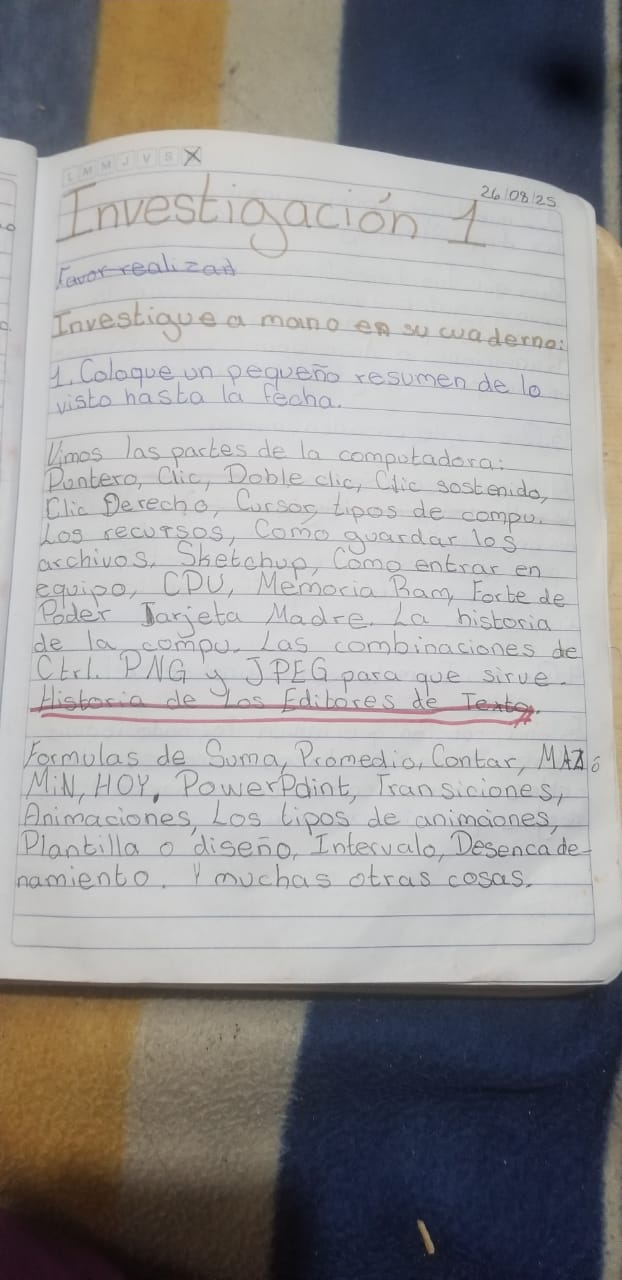 L M M J V S X
26/08/25
Investigación 1
Favor realizar
Investigue a mano en su cuaderno:
1. Coloque un pequeño resumen de lo
visto hasta la fecha.
Vimos las partes de la computadora:
Puntero, Clic, Doble clic, Clic sostenido,
Clic Derecho, Cursor, tipos de compu.
Los recursos, Como guardar los
archivos, Sketchup, Como entrar en
equipo, CPU, Memoria Ram, Forte de
Poder Tarjeta Madre. La historia
de la compu. Las combinaciones de
Ctrl. PNG y JPEG para que sirve.
Historia de Los Editores de Texto.
Formulas de Suma, Promedio, Contar, MAX ó
MiN, HOY, PowerPoint, Transiciones,
Animaciones, Los tipos de animciones,
Plantilla o diseño, Intervalo, Desencade-
namiento. Y muchas otras cosas.